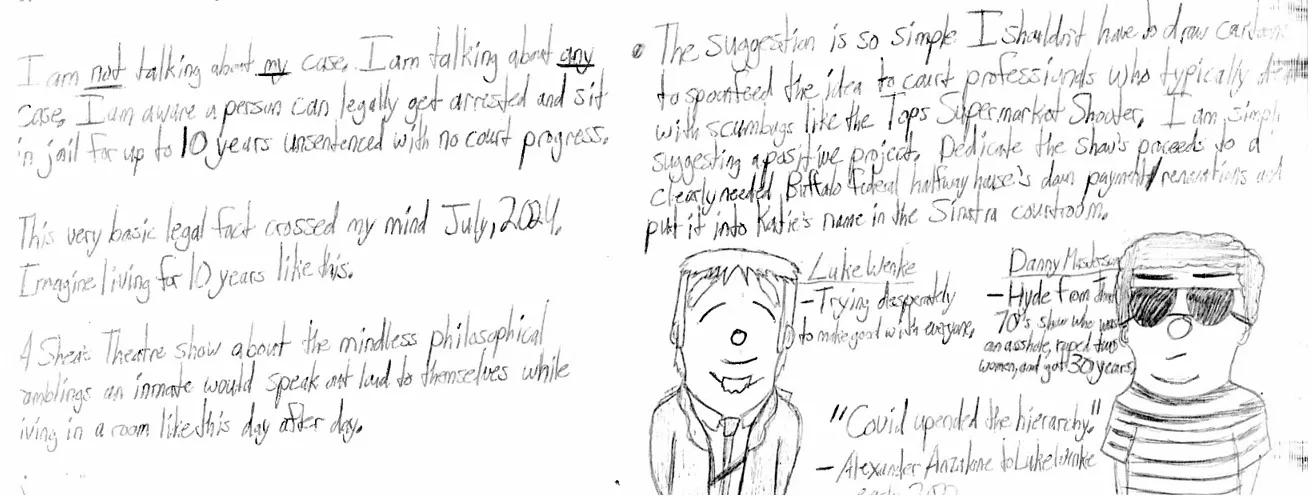 I am not talking about my case. I am talking about any
case. I am aware a person can legally get arrested and sit
in jail for up to 10 years unsentenced with no court progress.
This very basic legal fact crossed my mind July, 2024.
Imagine living for 10 years like this.
A Shea's Theatre show about the mindless philosophical
ramblings an inmate would speak out loud to themselves while
living in a room like this day after day.
The suggestion is so simple I shouldn't have to draw cartoons
to spoonfeed the idea to court professionals who typically deal
with scumbags like the Tops Supermarket Shooter. I am simply
suggesting a positive project. Dedicate the show's proceeds to a
clearly needed Buffalo federal halfway house's down payment/renovations and
put it into Katie's name in the Sinatra courtroom.
Luke Wenke
- Trying desperately
to make good with everyone.
Danny
- Hyde from That
70's show who was
an asshole, raped two
women, and got 30 years.
"Covid upended the hierarchy."
- Alexander Anzalone to Luke Wenke